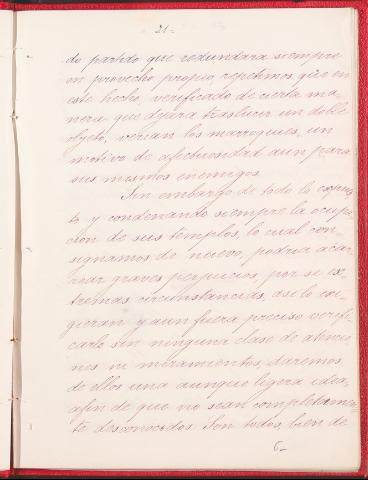 21=
do partido que redundara siempre
en provecho propio repetimos que en
este hecho, verificado de cierta ma-
nera que dejara traslucir un doble
objeto, verian los marroquies, un
motivo de afectuosidad aun para
sus mismos enemigos.
Sin embargo de todo lo expues-
to y condenando siempre la ocupa-
cion de sus templos, lo cual con-
signamos de nuevo, podria aca-
rrear graves perjuicios por si ex-
tremas circunstancias, asi lo exi-
gieran y aun fuera preciso verifi-
carlo sin ninguna clase de atencio-
nes ni miramientos, daremos
de ellos una aunque ligera idea,
afin de que no sean completamen-
te desconocidos. Son todos, bien de
6-